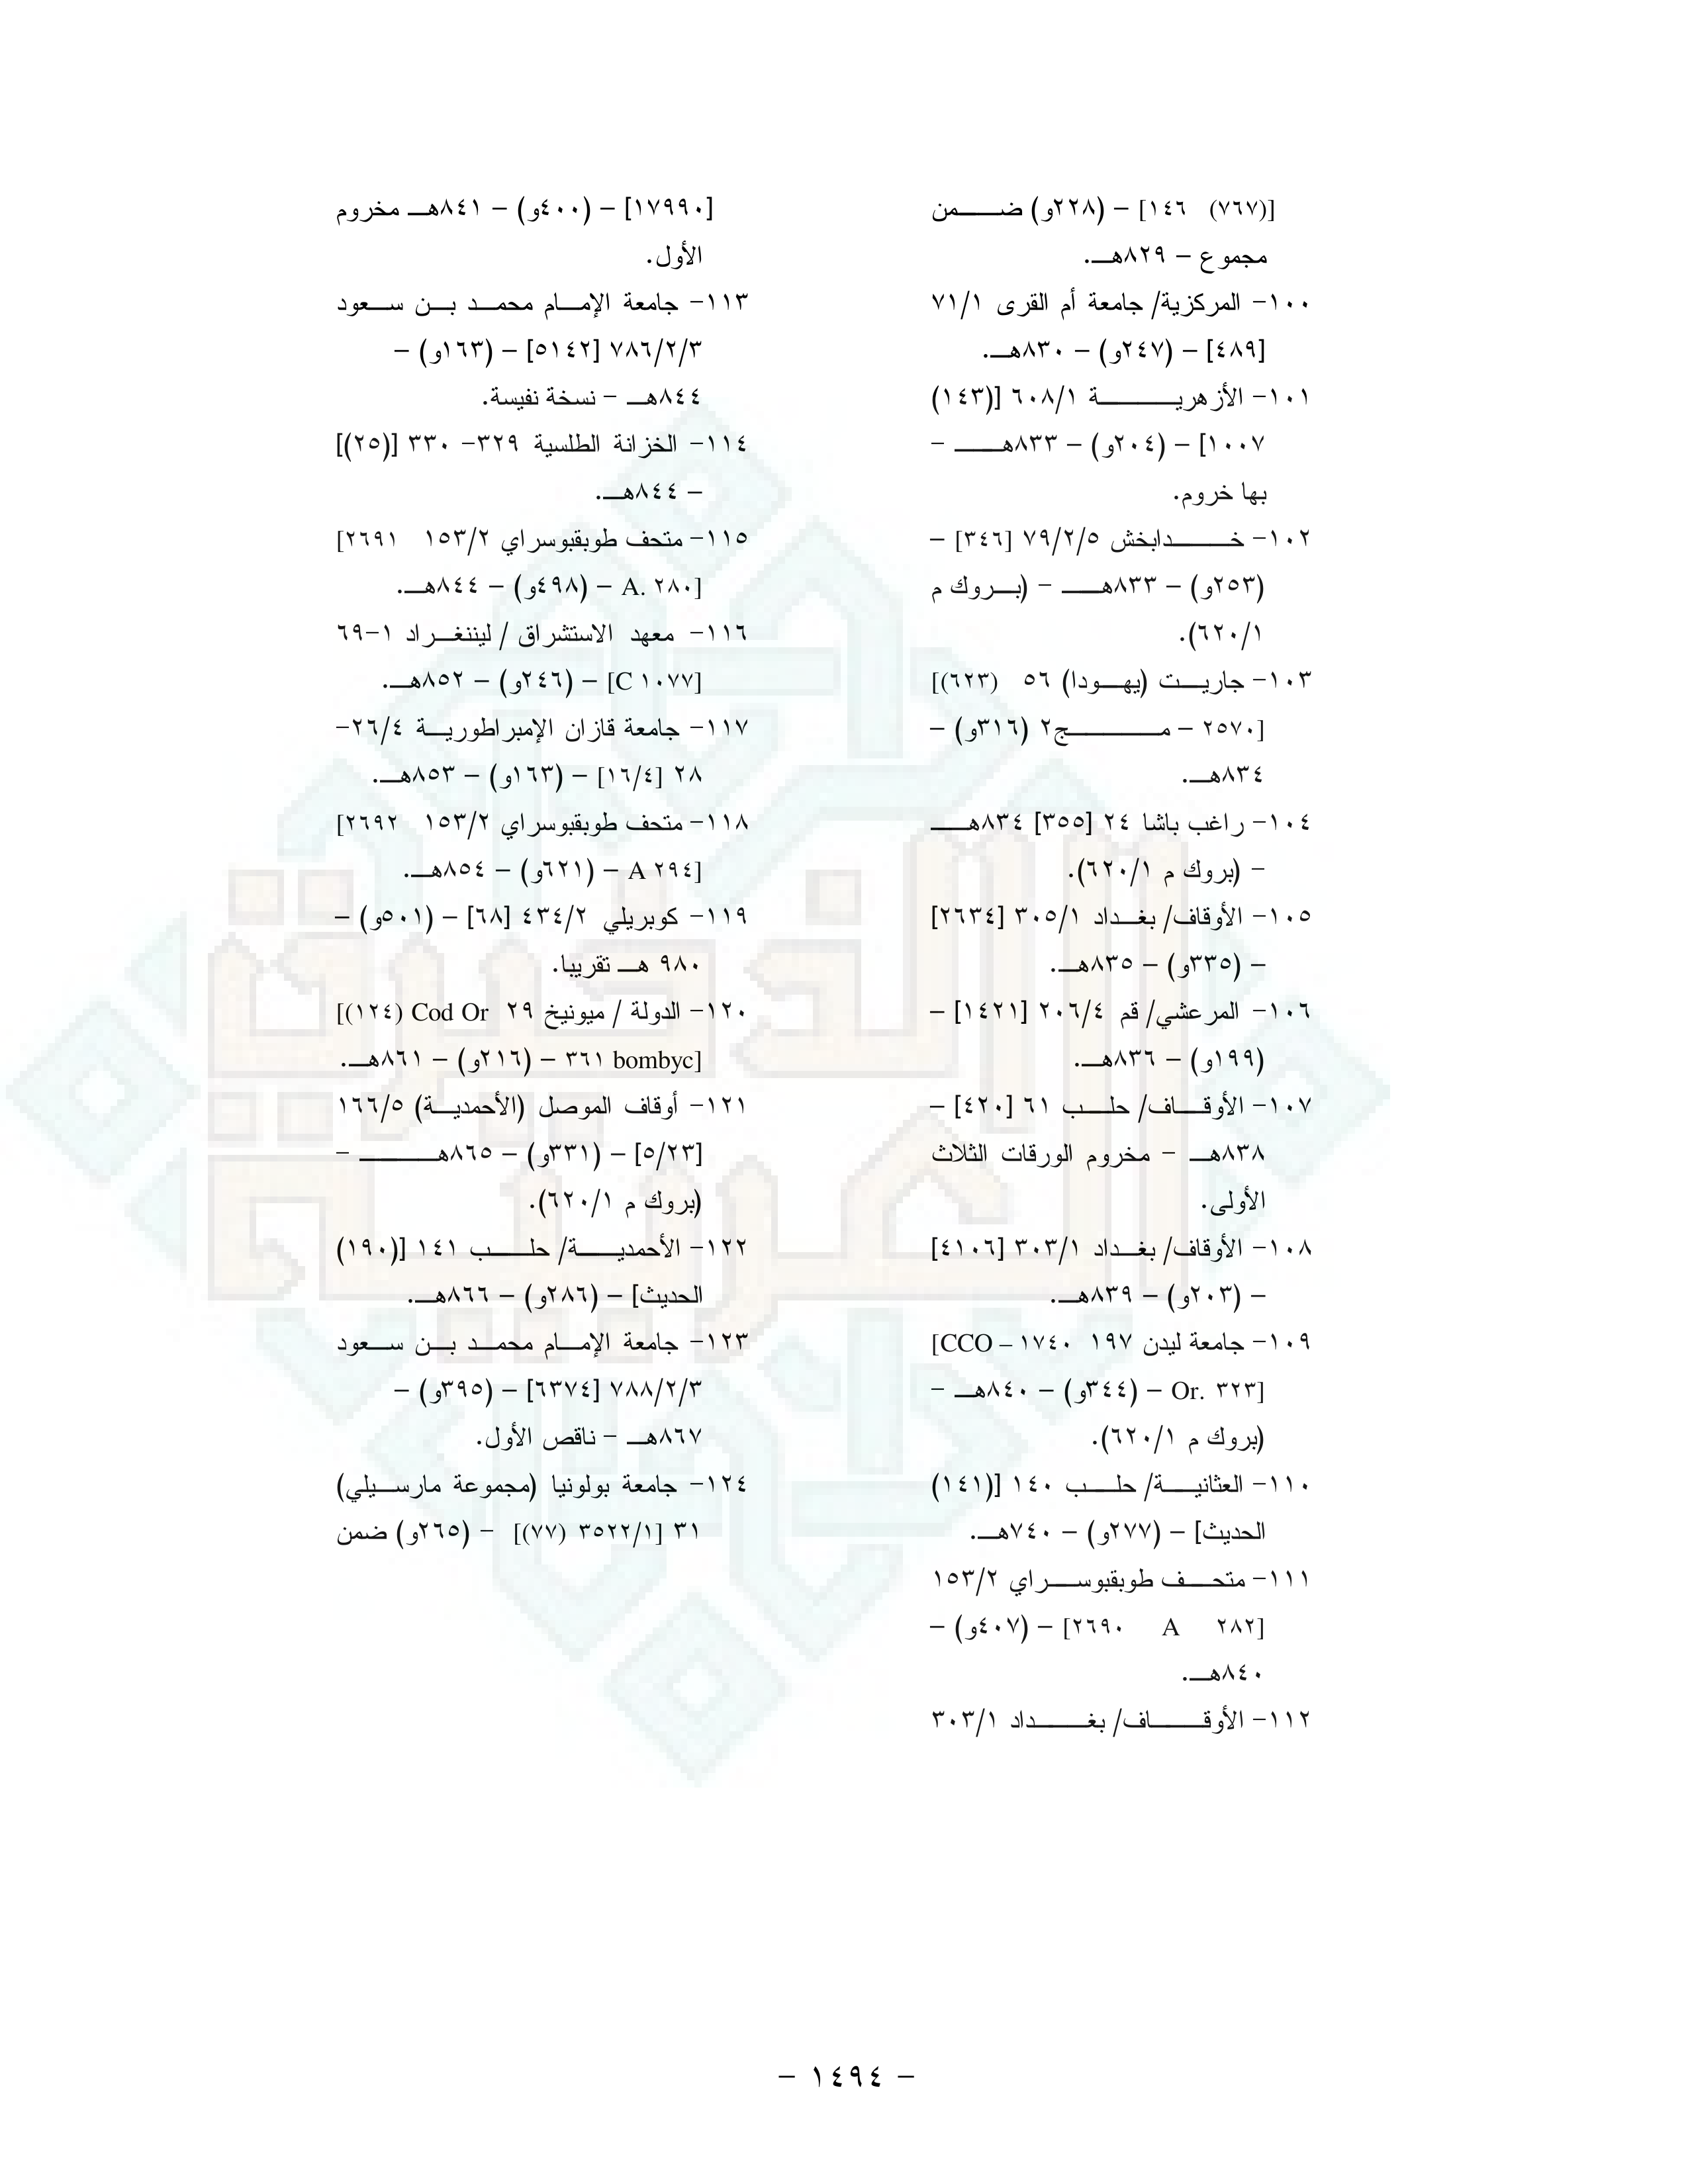 [(٧٦٧) ١٤٦] – (٢٢٨و) ضمن
مجموع – ٨٢٩هـ.
١٠٠- المركزية/ جامعة أم القرى ٧١/١
[٤٨٩] – (٢٤٧و) – ٨٣٠هـ.
١٠١- الأزهرية ٦٠٨/١ [(١٤٣)
١٠٠٧] – (٢٠٤و) – ٨٣٣هـ -
بها خروم.
١٠٢- خدابخش ٧٩/٢/٥ [٣٤٦] –
(٢٥٣و) – ٨٣٣هـ - (بروك م
٦٢٠/١).
١٠٣- جاريت (يهودا) ٥٦ [(٦٢٣)
٢٥٧٠] – مج٢ (٣١٦و) –
٨٣٤هـ.
١٠٤- راغب باشا ٢٤ [٣٥٥] ٨٣٤هـ
- (بروك م ٦٢٠/١).
١٠٥- الأوقاف/ بغداد ٣٠٥/١ [٢٦٣٤]
– (٣٣٥و) – ٨٣٥هـ.
١٠٦- المرعشي/ قم ٢٠٦/٤ [١٤٢١] –
(١٩٩و) – ٨٣٦هـ.
١٠٧- الأوقاف/ حلب ٦١ [٤٢٠] –
٨٣٨هـ - مخروم الورقات الثلاث
الأولى.
١٠٨- الأوقاف/ بغداد ٣٠٣/١ [٤١٠٦]
– (٢٠٣و) – ٨٣٩هـ.
١٠٩- جامعة ليدن ١٩٧ [CCO – ١٧٤٠
Or. ٣٢٣] – (٣٤٤و) – ٨٤٠هـ -
(بروك م ٦٢٠/١).
١١٠- العثانية/ حلب ١٤٠ [(١٤١)
الحديث] – (٢٧٧و) – ٧٤٠هـ.
١١١- متحف طوبقبوسراي ١٥٣/٢
[٢٦٩٠ A ٢٨٢] – (٤٠٧و) –
٨٤٠هـ.
١١٢- الأوقاف/ بغداد ٣٠٣/١
[١٧٩٩٠] – (٤٠٠و) – ٨٤١هـ مخروم
الأول.
١١٣- جامعة الإمام محمد بن سعود
٧٨٦/٢/٣ [٥١٤٢] – (١٦٣و) –
٨٤٤هـ - نسخة نفيسة.
١١٤- الخزانة الطلسية ٣٢٩- ٣٣٠ [(٢٥)]
– ٨٤٤هـ.
١١٥- متحف طوبقبوسراي ١٥٣/٢ [٢٦٩١
A. ٢٨٠] – (٤٩٨و) – ٨٤٤هـ.
١١٦- معهد الاستشراق / ليننغراد ١-٦٩
[C ١٠٧٧] – (٢٤٦و) – ٨٥٢هـ.
١١٧- جامعة قازان الإمبراطورية ٢٦/٤-
٢٨ [١٦/٤] – (١٦٣و) – ٨٥٣هـ.
١١٨- متحف طوبقبوسراي ١٥٣/٢ [٢٦٩٢
A ٢٩٤] – (٦٢١و) – ٨٥٤هـ.
١١٩- كوبريلي ٤٣٤/٢ [٦٨] – (٥٠١و) –
٩٨٠ هـ تقريبا.
١٢٠- الدولة / ميونيخ ٢٩ [(١٢٤) Cod Or
bombyc ٣٦١] – (٢١٦و) – ٨٦١هـ.
١٢١- أوقاف الموصل (الأحمدية) ١٦٦/٥
[٥/٢٣] – (٣٣١و) – ٨٦٥هـ -
(بروك م ٦٢٠/١).
١٢٢- الأحمدية/ حلب ١٤١ [(١٩٠)
الحديث] – (٢٨٦و) – ٨٦٦هـ.
١٢٣- جامعة الإمام محمد بن سعود
٧٨٨/٢/٣ [٦٣٧٤] – (٣٩٥و) –
٨٦٧هـ - ناقص الأول.
١٢٤- جامعة بولونيا (مجموعة مارسيلي)
٣١ [٣٥٢٢/١ (٧٧)] - (٢٦٥و) ضمن
– ١٤٩٤ –